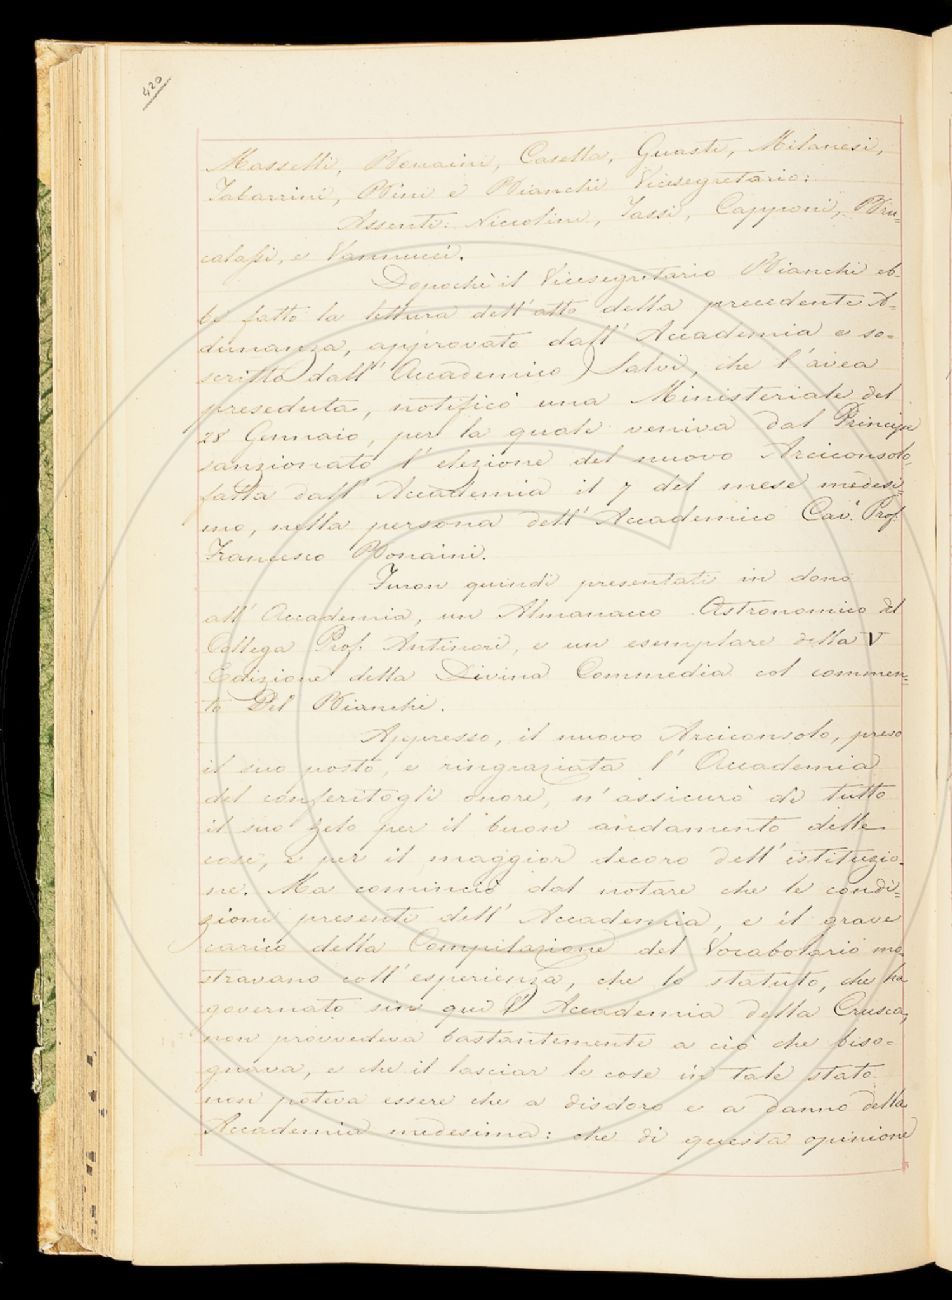 420
Masselli, Bonaini, Casella, Guasti, Milanesi,
Tabarrini, Bini e Bianchi Vicesegretario:
Assenti: Niccolini, Tassi, Capponi, Bru-
calassi, e Vannucci.
Dopochè il Vicesegretario Bianchi eb-
be fatto la lettura dell'atto della precedente A-
dunanza, approvato dall'Accademia e so-
scritto dall'Accademico Salvi, che l'avea
preseduta, notificò una Ministeriale del
28 Gennaio, per la quale veniva dal Principe
sanzionato l'elezione del nuovo Arciconsolo,
fatta dall'Accademia il 7 del mese medesi-
mo, nella persona dell'Accademico Cav. Prof.
Francesco Bonaini.
Furon quindi presentati in dono
all'Accademia, un Almanacco Astronomico del
Collega Prof. Antinori, e un esemplare della V
Edizione della Divina Commedia col commen-
to Del Bianchi.
Appresso, il nuovo Arciconsolo, preso
il suo posto, e ringraziata l'Accademia
del conferitogli onore, n'assicurò di tutto
il suo zelo per il buon andamento delle
cose, e per il maggior decoro dell'istituzio-
ne. Ma cominciò dal notare che le condi-
zioni presenti dell'Accademia, e il grave
carico della Compilazione del Vocabolario mo-
stravano coll'esperienza, che lo statuto, che ha
governato sin qui l'Accademia della Crusca,
non provvedeva bastantemente a ciò che biso-
gnava, e che il lasciar le cose in tale stato
non poteva essere che a disdoro e a danno della
Accademia medesima: che di questa opinione